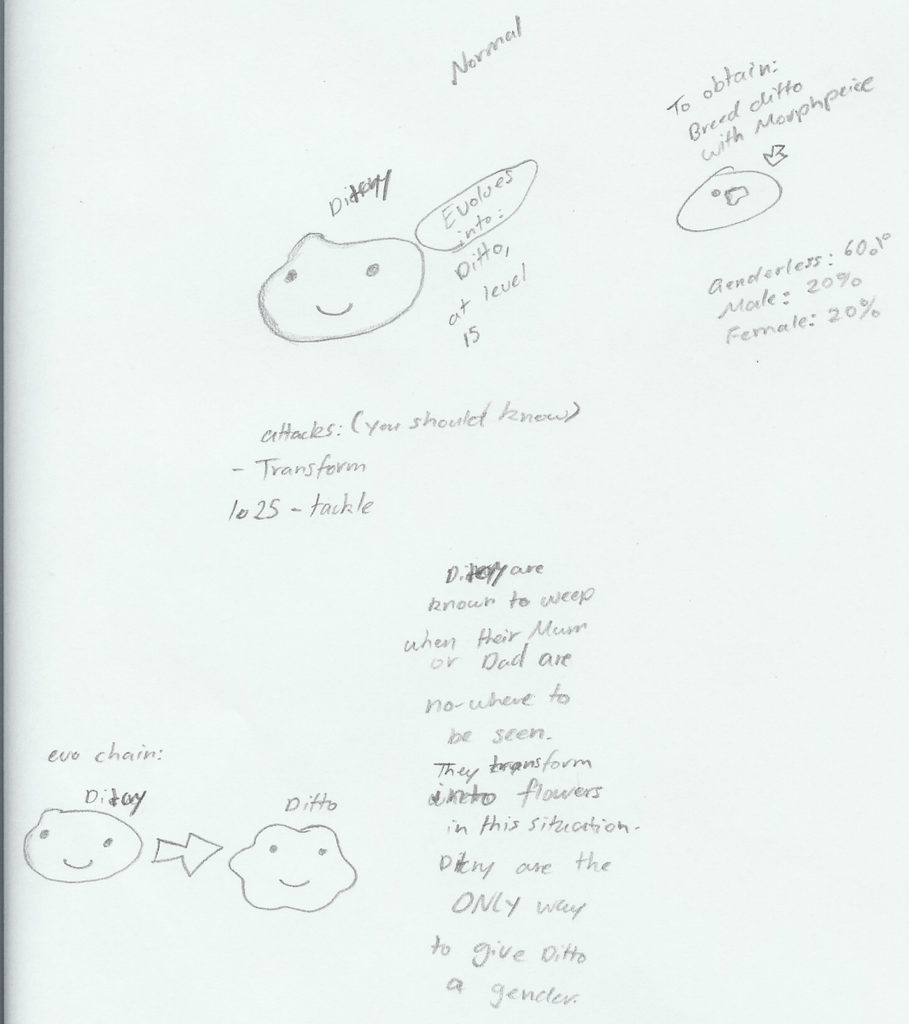 Normal
To obtain:
Breed ditto
with Morphpeice
Evolves
into:
Ditto,
at level
15
Genderless: 60%
Male: 20%
Female: 20%
attacks: (you should know)
- Transform
lv 25 - tackle
are
known to weep
when their Mum
or Dad are
no-where to
be seen.
They transform
into flowers
in this situation.
Ditry are the
ONLY way
to give Ditto
a gender.
evo chain:
Ditto